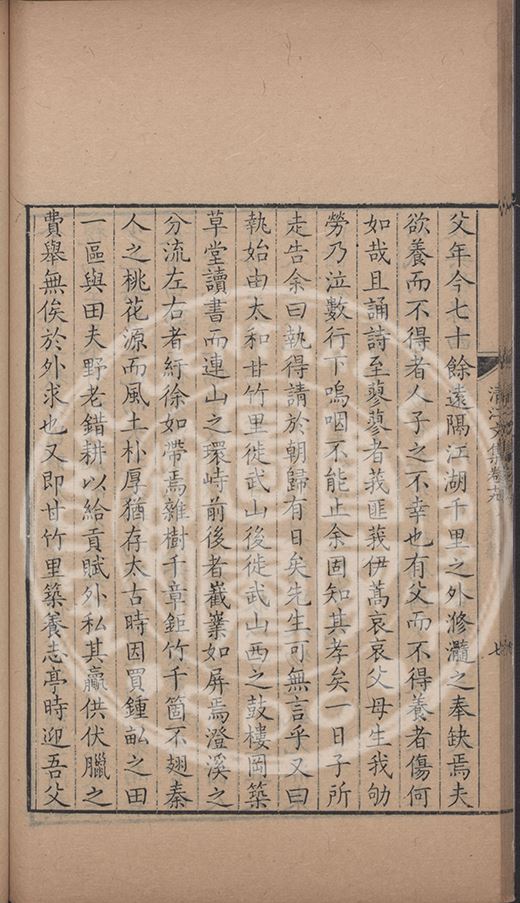 父年今七十餘遠隔江湖千里之外滫瀡之奉缺焉夫
欲養而不得者人子之不幸也有父而不得養者傷何
如哉且誦詩至蓼蓼者莪匪莪伊蒿哀哀父母生我劬
勞乃泣數行下嗚咽不能止余固知其孝矣一日子所
走告余曰執得請於朝歸有日矣先生可無言乎又曰
執始由太和甘竹里徙武山後徙武山西之鼓樓岡築
草堂讀書而連山之環峙前後者嶻嶪如屏焉澄溪之
分流左右者紆徐如帶焉雜樹千章鉅竹千箇不翅秦
人之桃花源而風土朴厚猶存太古時因買鍾畝之田
一區與田夫野老錯耕以給貢賦外私其贏供伏臘之
費舉無俟於外求也又即甘竹里築養志亭時迎吾父
清江文集卷九
七